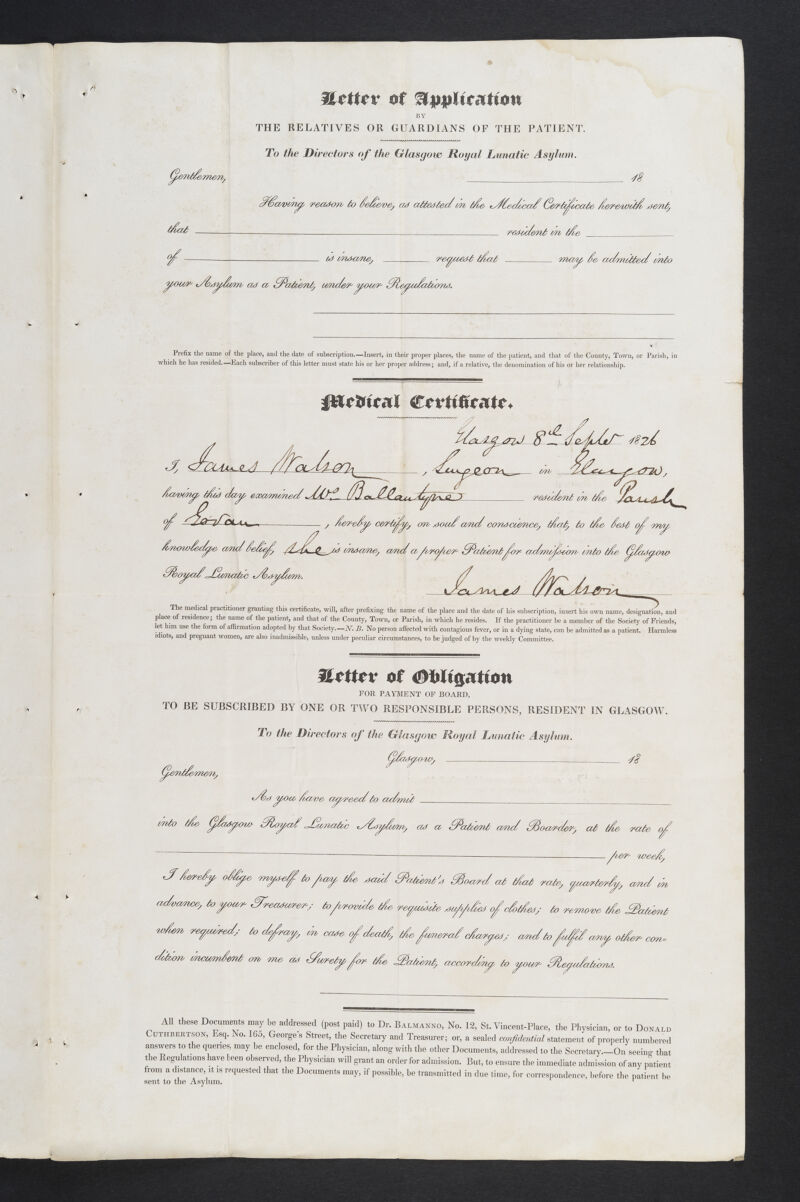 Letter of Application
BY
THE RELATIVES OR GUARDIANS OF THE PATIENT.
To the Directors of the Glasgow Royal Lunatic Asylum.
Gentlemen, 18
Having reason to believe, as attested in the Medical Certificate herewith sent,
that resident in the
of is insane, request that may be admitted into
your Asylum as a Patient, under your Regulations.
Prefix the name of the place, and the date of subscription.—Insert, in their proper places, the name of the patient, and that of the County, Town, or Parish, in
which he has resided.—Each subscriber of this letter must state his or her proper address; and, if a relative, the denomination of his or her relationship.
Medical Certificate.
Glasgow 8th Septr 1826
I, James Watson, Surgeon in Glasgow,
having this day examined Mrs Ballantyne resident in the Parish
of Govan, hereby certify, on soul and conscience, that, to the best of my
knowledge and belief, she is insane, and a proper Patient for admission into the Glasgow
Royal Lunatic Asylum.
James Watson
The medical practitioner granting this certificate, will, after prefixing the name of the place and the date of his subscription, insert his own name, designation, and
place of residence; the name of the patient, and that of the County, Town, or Parish, in which he resides. If the practitioner be a member of the Society of Friends,
let him use the form of affirmation adopted by that Society.—N. B. No person affected with contagious fever, or in a dying state, can be admitted as a patient. Harmless
idiots, and pregnant women, are also inadmissible, unless under peculiar circumstances, to be judged of by the weekly Committee.
Letter of Obligation
FOR PAYMENT OF BOARD,
TO BE SUBSCRIBED BY ONE OR TWO RESPONSIBLE PERSONS, RESIDENT IN GLASGOW.
To the Directors of the Glasgow Royal Lunatic Asylum.
Glasgow, 18
Gentlemen,
As you have agreed to admit
into the Glasgow Royal Lunatic Asylum, as a Patient and Boarder, at the rate of
per week,
I hereby oblige myself to pay the said Patient's Board at that rate, quarterly, and in
advance, to your Treasurer; to provide the requisite supplies of clothes; to remove the Patient
when required; to defray, in case of death, the funeral charges; and to fulfil any other con=
dition incumbent on me as Surety for the Patient, according to your Regulations.
All these Documents may be addressed (post paid) to Dr. BALMANNO, No. 12, St. Vincent-Place, the Physician, or to DONALD
CUTHBERTSON, Esq. No. 165, George's Street, the Secretary and Treasurer; or, a sealed confidential statement of properly numbered
answers to the queries, may be enclosed, for the Physician, along with the other Documents, addressed to the Secretary.—On seeing that
the Regulations have been observed, the Physician will grant an order for admission. But, to ensure the immediate admission of any patient
from a distance, it is requested that the Documents may, if possible, be transmitted in due time, for correspondence, before the patient be
sent to the Asylum.